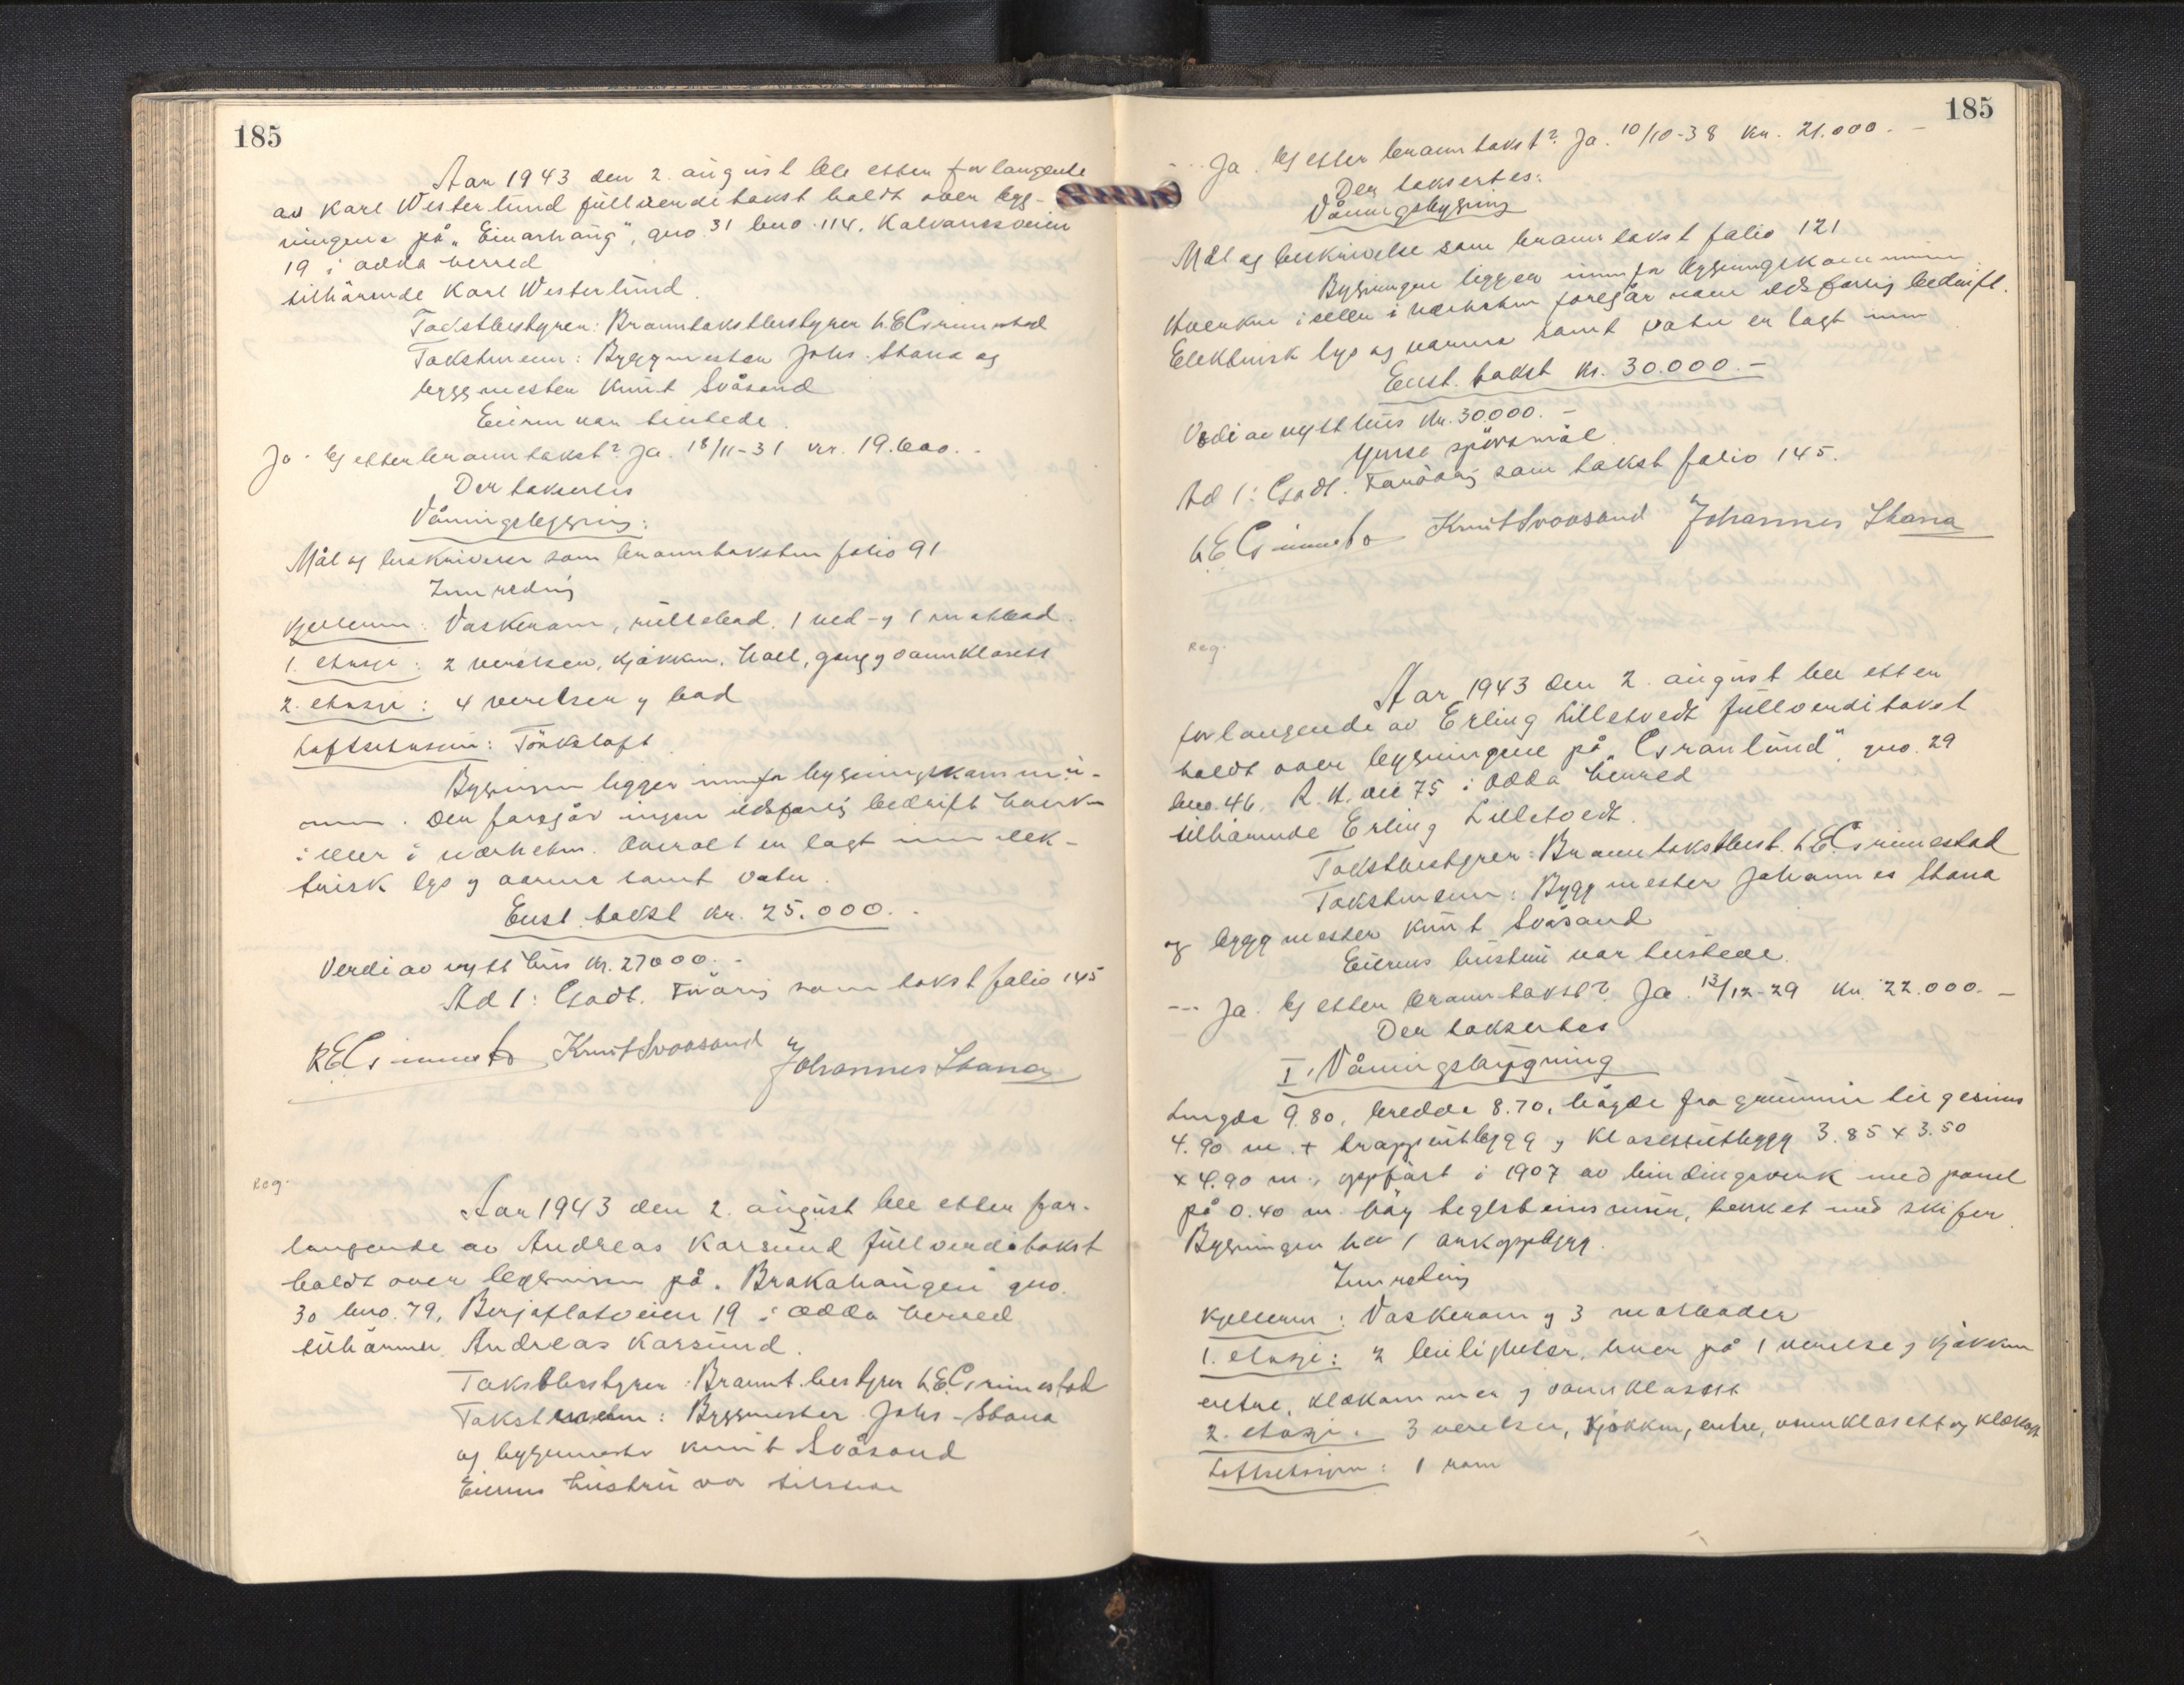 185
Aar 1943 den 2. august ble etter forlangende
av Karl Westerlund fullverditakst holdt over byg-
ningene på "Einarhaug", gno 31 bno. 114. Kalvanesveien
19 i Odda herred
tilhörende Karl Westerlund.
Takstbestyrer: Branntakstbestyrer L.E. Grimestad
Takstmenn: Byggmester Johs. Stana og
byggmester Knut Svåsand
Eieren var tilstede.
Ja. Ej etter branntakst? Ja. 18/11-31 kr. 19.600.-
Der taksertes
Våningsbygning:
Mål og beskrivelse som branntaksten folio 91
Innredning
Kjelleren: Vaskerom, rullebod, 1 ved- og 1 matbod.
1. etasje: 2 værelser, kjøkken, hall, gang og vannklosett
2. etasje: 4 værelser og bad
Loftsetasjen: Törkeloft.
Bygningen ligger innenfor bygningskommu-
nen. Der foregår ingen ildsfarlig bedrift hverken
i eller i nærheten. Overalt er lagt inn elek-
trisk lys og varme samt vatn.
Enst. takst kr. 25.000.-
Verdi av nytt hus kr. 27000.-
Ad 1: Godt. Forövrig som takst folio 145
L.E. Grimestad Knut Svaasand Johannes Stana
Reg.
Aar 1943 den 2. august ble etter for-
langende av Andreas Karsund fullverditakst
holdt over bygningen på "Brakahaugen" gno.
30 bno. 79, Berjaflatveien 19 i Odda herred
tilhörende Andreas Karsund.
Takstbestyrer: Brannt.bestyrer L.E. Grimestad
Takstmenn: Byggmester Johs. Stana
og byggmester Knut Svåsand
Eierens hustru var tilstede
185
Ja. Ej etter branntakst? Ja. 10/10-38 kr. 21.000.-
Der taksertes:
Våningsbygning
Mål og beskrivelse som branntakst folio 121
Bygningen ligger innenfor bygningskommunen.
Hverken i eller i nærheten foregår noen ildsfarlig bedrift.
Elektrisk lys og varme samt vatn er lagt inn
Enst. takst kr. 30.000.-
Verdi av nytt hus kr. 30000.-
Ymse spörsmål.
Ad 1: Godt. Forövrig som takst folio 145.
L.E. Grimestad Knut Svaasand Johannes Stana
Reg.
Aar 1943 den 2. august ble etter
forlangende av Erling Lilletvedt fullverditakst
holdt over bygningene på "Granlund", gno. 29
bno. 46. R. V. vei 75 i Odda herred
tilhörende Erling Lilletvedt.
Takstbestyrer: Branntakstbest. L.E. Grimestad
Takstmenn: Byggmester Johannes Stana
og byggmester Knut Svåsand
Eierens hustru var tilstede.
--- Ja. Ej etter branntakst? Ja. 13/12-29 kr. 22.000.-
Der taksertes
I. Våningsbygning
Lengde 9.80, bredde 8.70, högde fra grunnmur til gesims
4.90 m. + trappeutbygg og klosettutbygg 3.85 x 3.50
x 4.90 m., oppfört i 1907 av bindingsverk med panel
på 0.40 m. höy teglsteinsmur, tekket med skifer.
Bygningen har 1 arkoppbygg.
Innredning
Kjelleren: Vaskerom og 3 matboder
1. etasje: 2 leiligheter, hver på 1 værelse og kjökken
entre, klekammer og vannklosett
2. etasje. 3 værelser, kjökken, entre, vannklosett og
Loftsetasjen: 1 rom